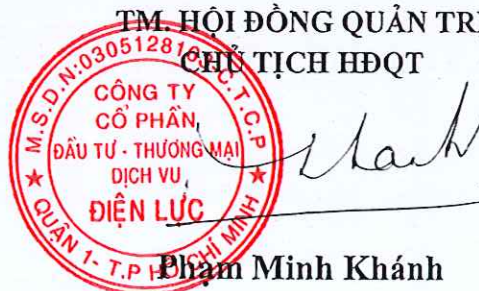 TM. HỘI ĐỒNG QUẢN TRỊ
CHỦ TỊCH HĐQT
M.S.D.N:030512810 C.T.C.P
CÔNG TY
CỔ PHẦN
ĐẦU TƯ - THƯƠNG MẠI
DỊCH VỤ
ĐIỆN LỰC
QUẬN 1 - T.P HỒ CHÍ MINH
Phạm Minh Khánh